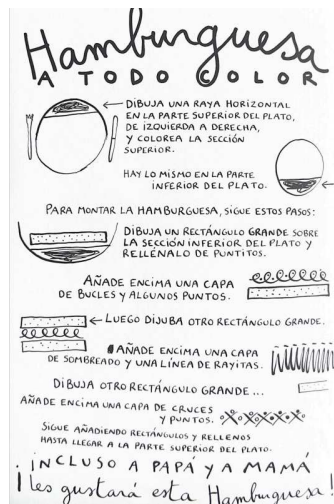 Hamburguesa
A TODO COLOR
DIBUJA UNA RAYA HORIZONTAL
EN LA PARTE SUPERIOR DEL PLATO,
DE IZQUIERDA A DERECHA,
Y COLOREA LA SECCIÓN
SUPERIOR.
HAY LO MISMO EN LA PARTE
INFERIOR DEL PLATO.
PARA MONTAR LA HAMBURGUESA, SIGUE ESTOS PASOS:
DIBUJA UN RECTÁNGULO GRANDE SOBRE
LA SECCIÓN INFERIOR DEL PLATO Y
RELLÉNALO DE PUNTITOS.
AÑADE ENCIMA UNA CAPA
DE BUCLES Y ALGUNOS PUNTOS.
LUEGO DIJUBA OTRO RECTÁNGULO GRANDE.
AÑADE ENCIMA UNA CAPA
DE SOMBREADO Y UNA LÍNEA DE RAYITAS.
DIBUJA OTRO RECTÁNGULO GRANDE...
AÑADE ENCIMA UNA CAPA DE CRUCES
Y PUNTOS.
SIGUE AÑADIENDO RECTÁNGULOS Y RELLENOS
HASTA LLEGAR A LA PARTE SUPERIOR DEL PLATO.
¡INCLUSO A PAPÁ Y A MAMÁ
les gustará esta Hamburguesa!